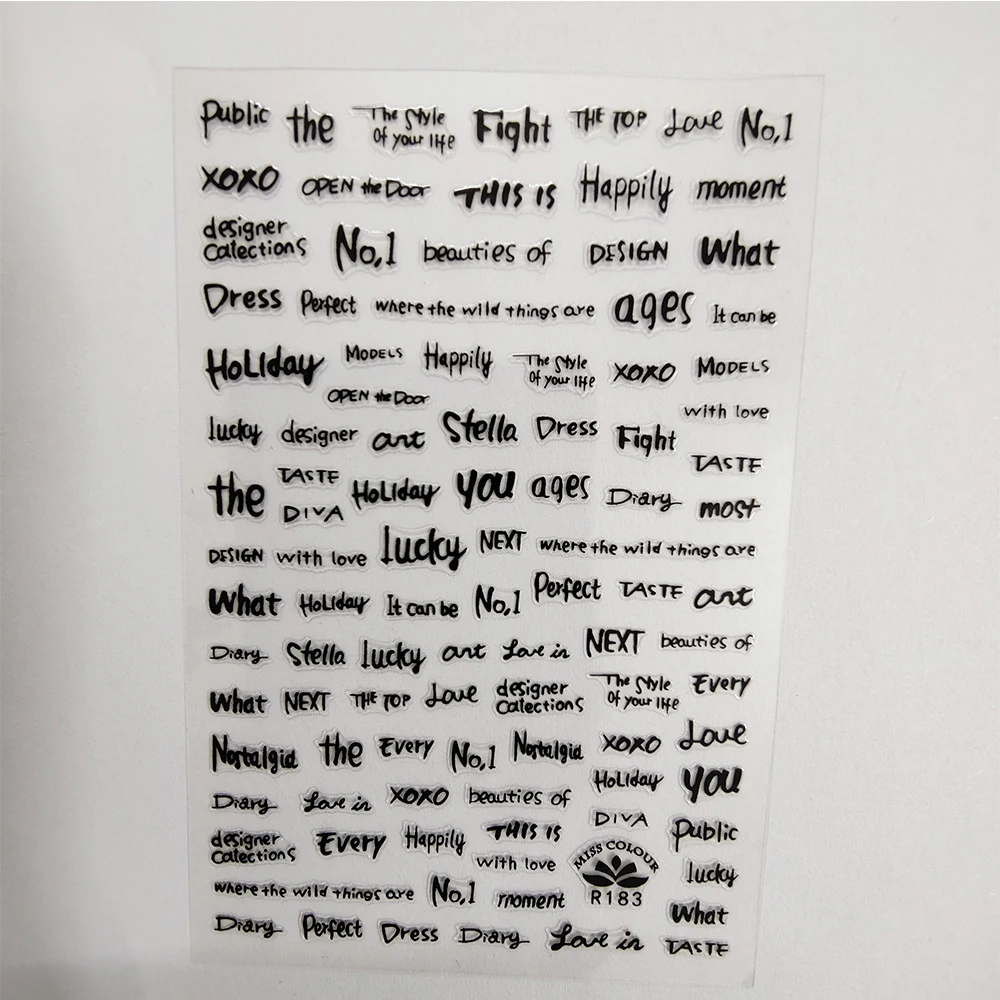 Public the The Style Of your life Fight THE TOP Love No,1
XOXO OPEN the Door THIS IS Happily moment
designer Calections No,1 beauties of DESIGN What
Dress Perfect where the wild things are ages It can be
HoLIday MODELS Happily The Style Of your life XOXO MODELS
OPEN the Door with love
lucky designer art Stella Dress Fight
TASTE
the TASTE HoLIday you ages Diary most
DIVA
DESIGN with love lucky NEXT where the wild things are
What HoLIday It can be No,1 Perfect TASTE art
Diary Stella lucky art Love in NEXT beauties of
What NEXT THE TOP Love designer Calections The Style Of your life Every
Nostalgia the Every No,1 Nostalgia XOXO Love
HoLIday you
Diary Love in XOXO beauties of
DIVA Public
designer Calections Every Happily THIS IS
with love MISS COLOUR lucky
where the wild things are No,1 moment R183
What
Diary Perfect Dress Diary Love in TASTE